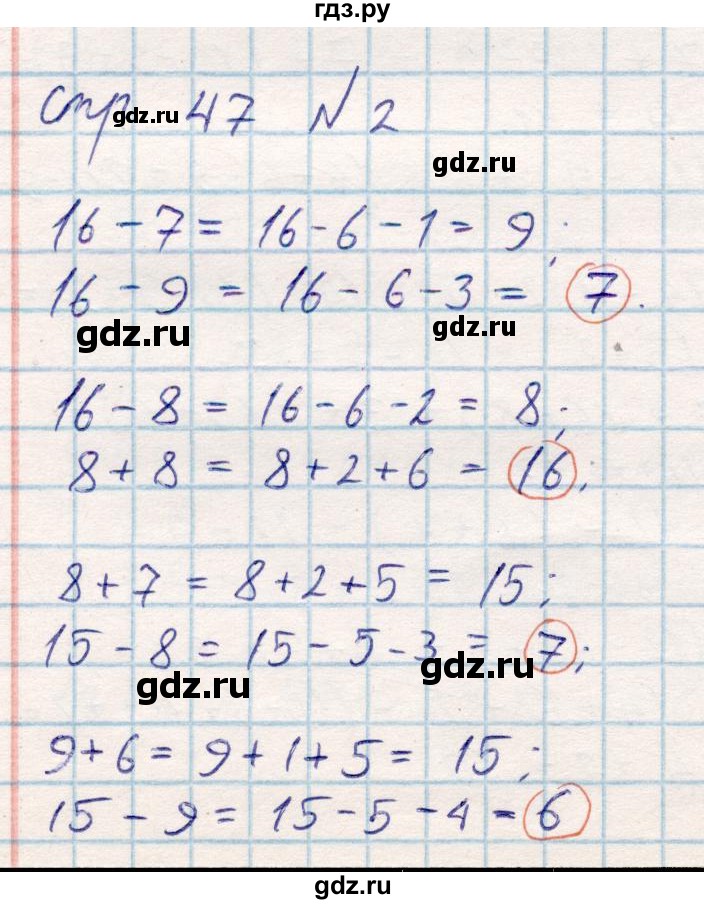 гдз.ру
стр gdz.ru 47 № 2
gdz.ru
16 - 7 = 16 - 6 - 1 = 9;
16 - 9 = 16 - 6 - 3 = 7.
gdz.ru gdz.ru
16 - 8 = 16 - 6 - 2 = 8;
8 + 8 = 8 + 2 + 6 = 16;
8 + 7 = 8 + 2 + 5 = 15;
15 - 8 = 15 - 5 - 3 = 7;
gdz.ru gdz.ru
9 + 6 = 9 + 1 + 5 = 15;
15 - 9 = 15 - 5 - 4 = 6
gdz.ru